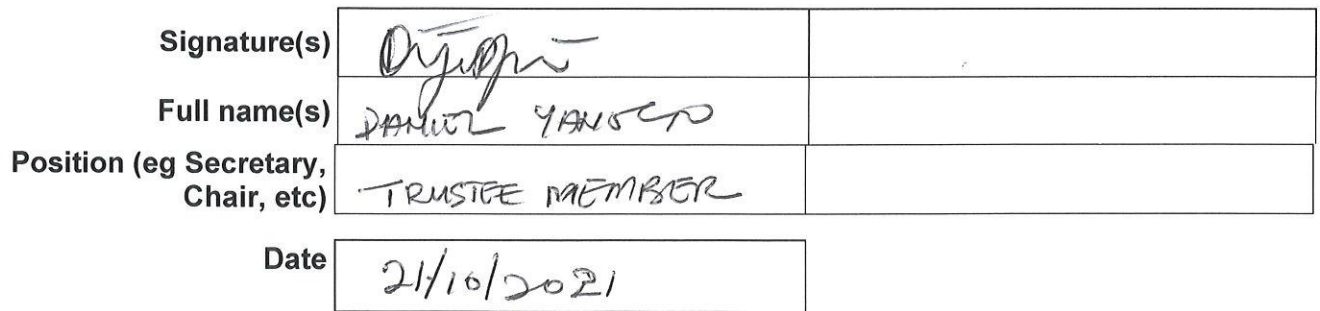 Signature(s)
Full name(s) DANIEL
Position (eg Secretary,
Chair, etc) TRUSTEE MEMBER
Date 21/10/2021